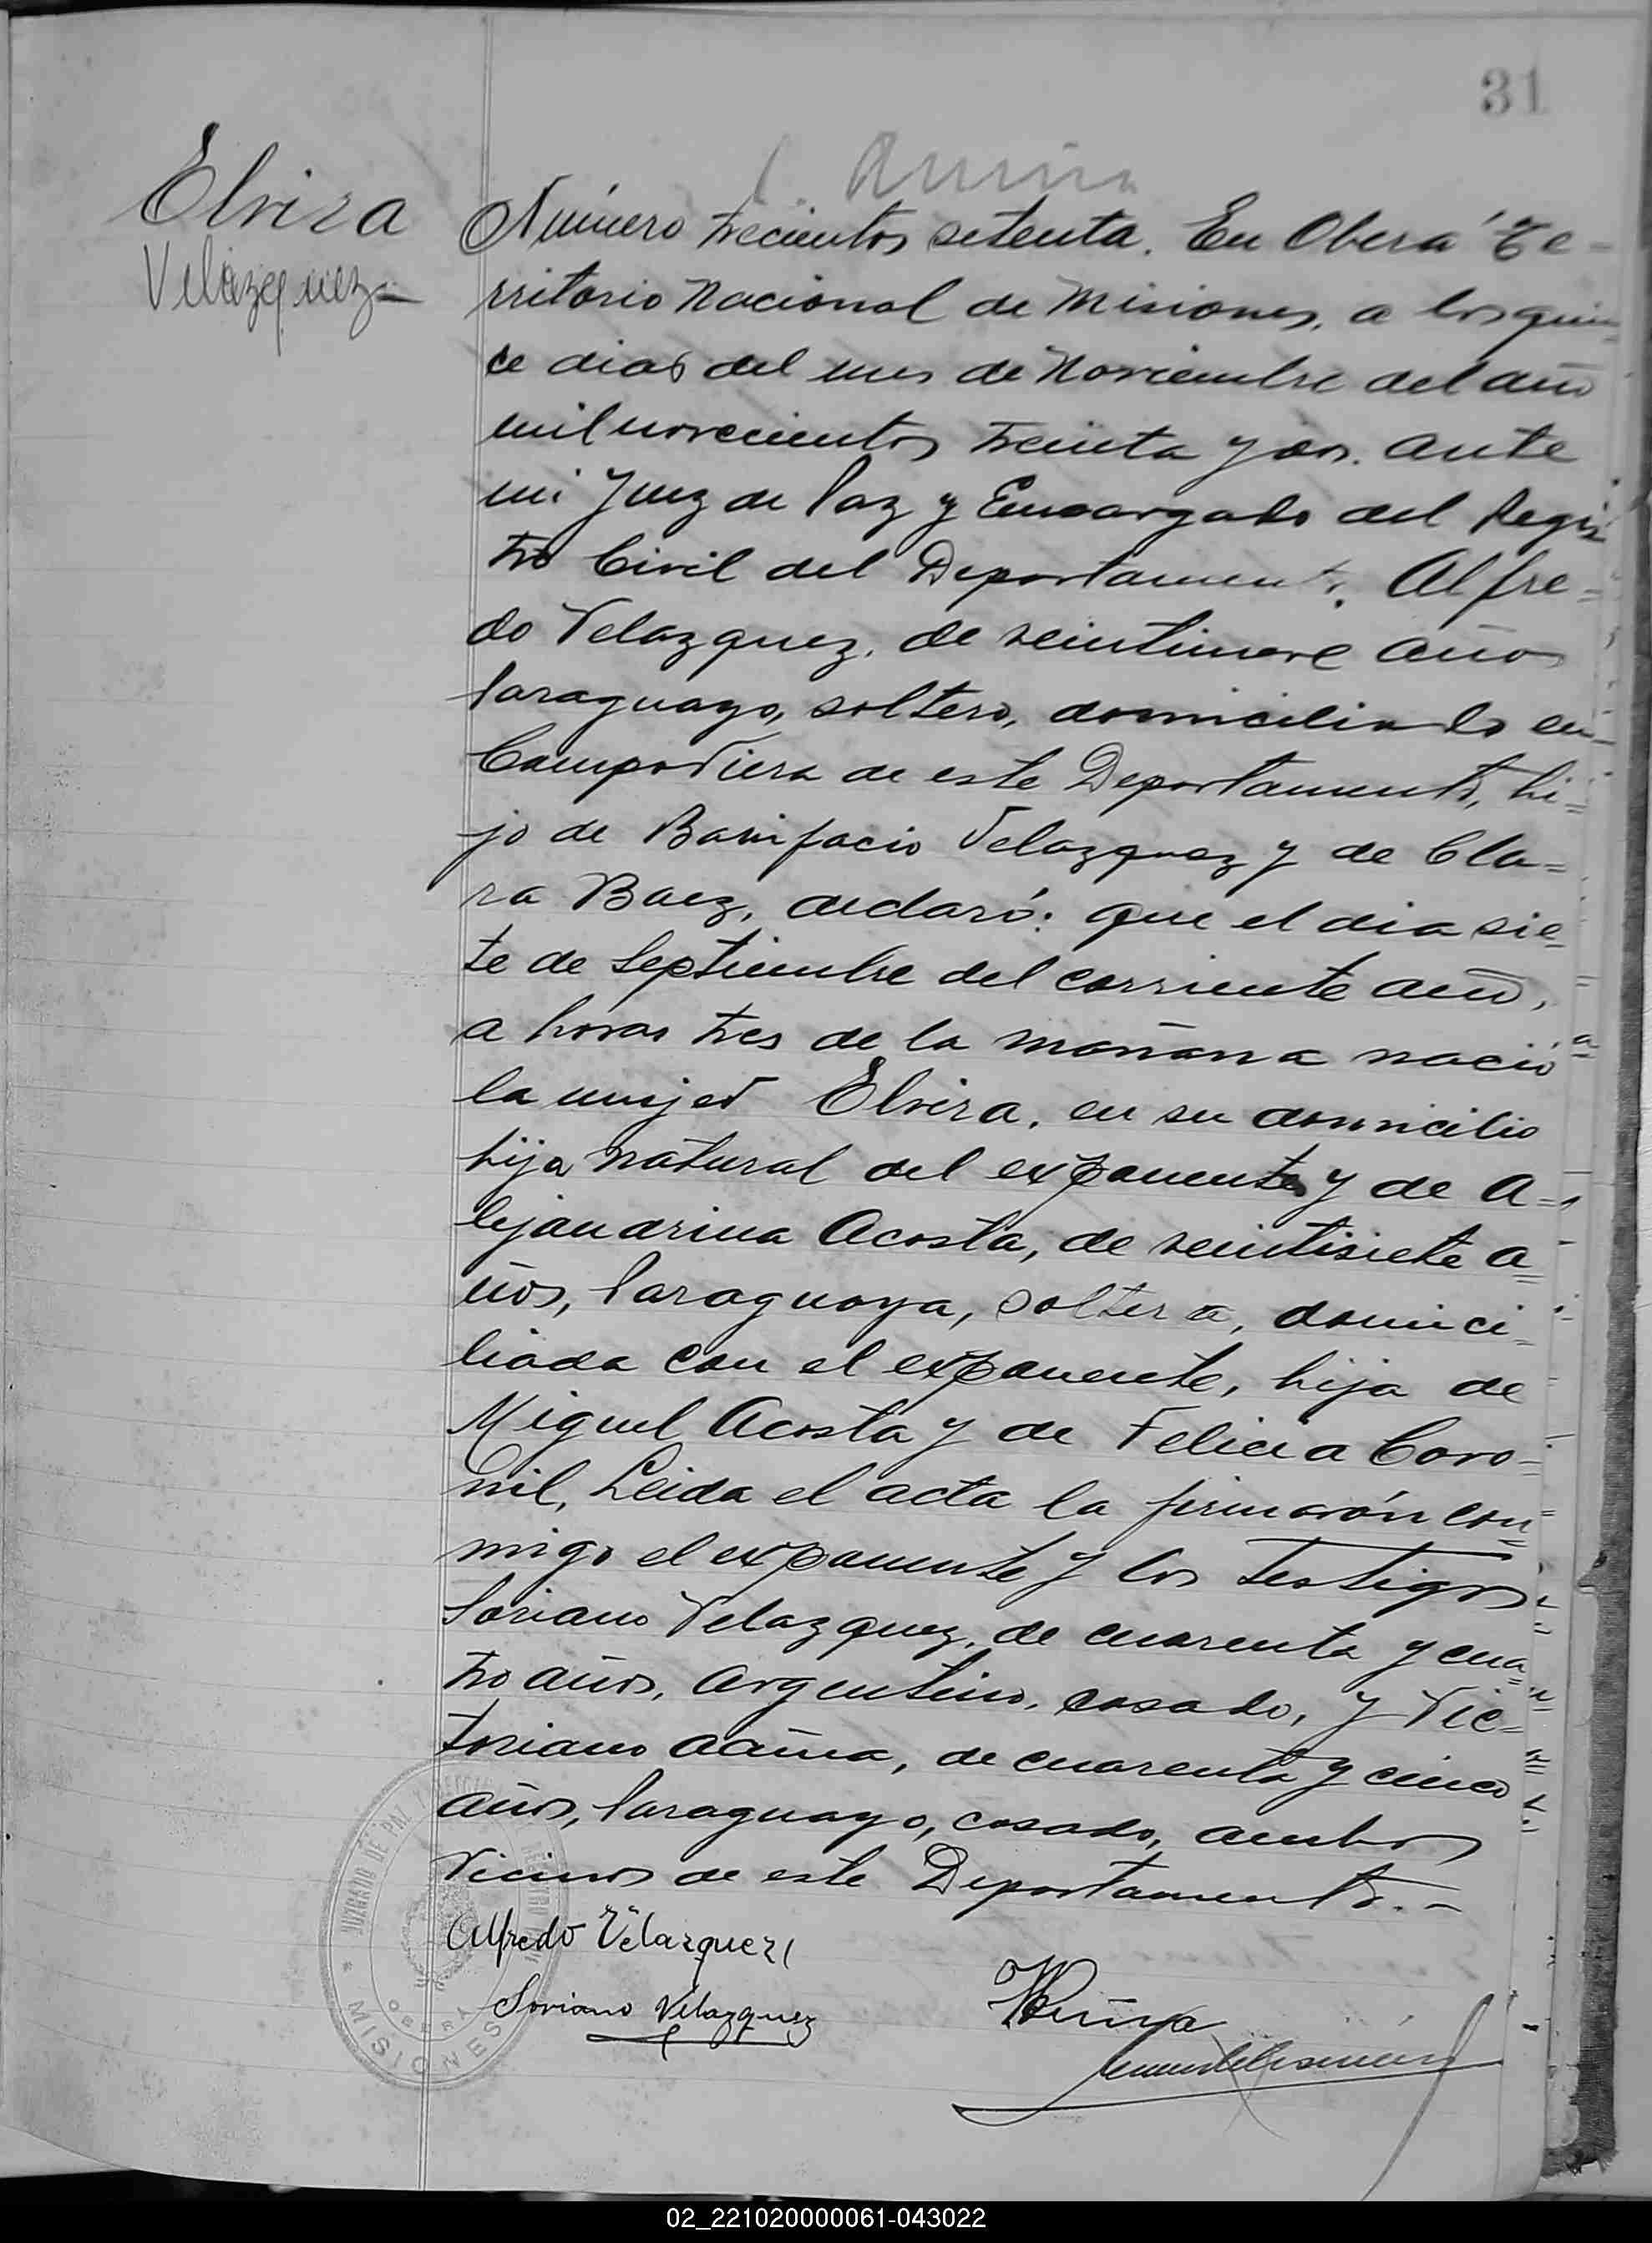 31
Elvira
Velazquez
Número trecientos setenta. En Oberá Te-
rritorio Nacional de Misiones, a los quin
ce dias del mes de Noviembre del año
mil novecientos treinta y dos. ante
mi Juez de Paz y Encargado del Regis
tro Civil del Departamento. Alfre=
do Velazquez, de veintinueve años
Paraguayo, soltero, domiciliado en
Campo Viera de este Departamento, hi=
jo de Bonifacio Velazquez y de Cla=
ra Baez, declaró: que el dia sie
te de Septiembre del corriente año,
a horas tres de la mañana nació
la mujer Elvira, en su domicilio
hija natural del exponente y de A=
lejandrina Acosta, de veintisiete a
ños, Paraguaya, soltera, domici
liada con el exponente, hija de
Miguel Acosta y de Felicia Coro=
nil, Leida el acta la firmarón con
migo el exponente y los testigos
Soriano Velazquez, de cuarenta y cua
tro años, Argentino, casado, y Vic=
toriano , de cuarenta y cinco
años, Paraguayo, casado, ambos
Vecinos de este Departamento.-
Alfredo Velazquez
Soriano Velazquez
JUZGADO DE PAZ
OBERA
MISIONES
02_221020000061-043022